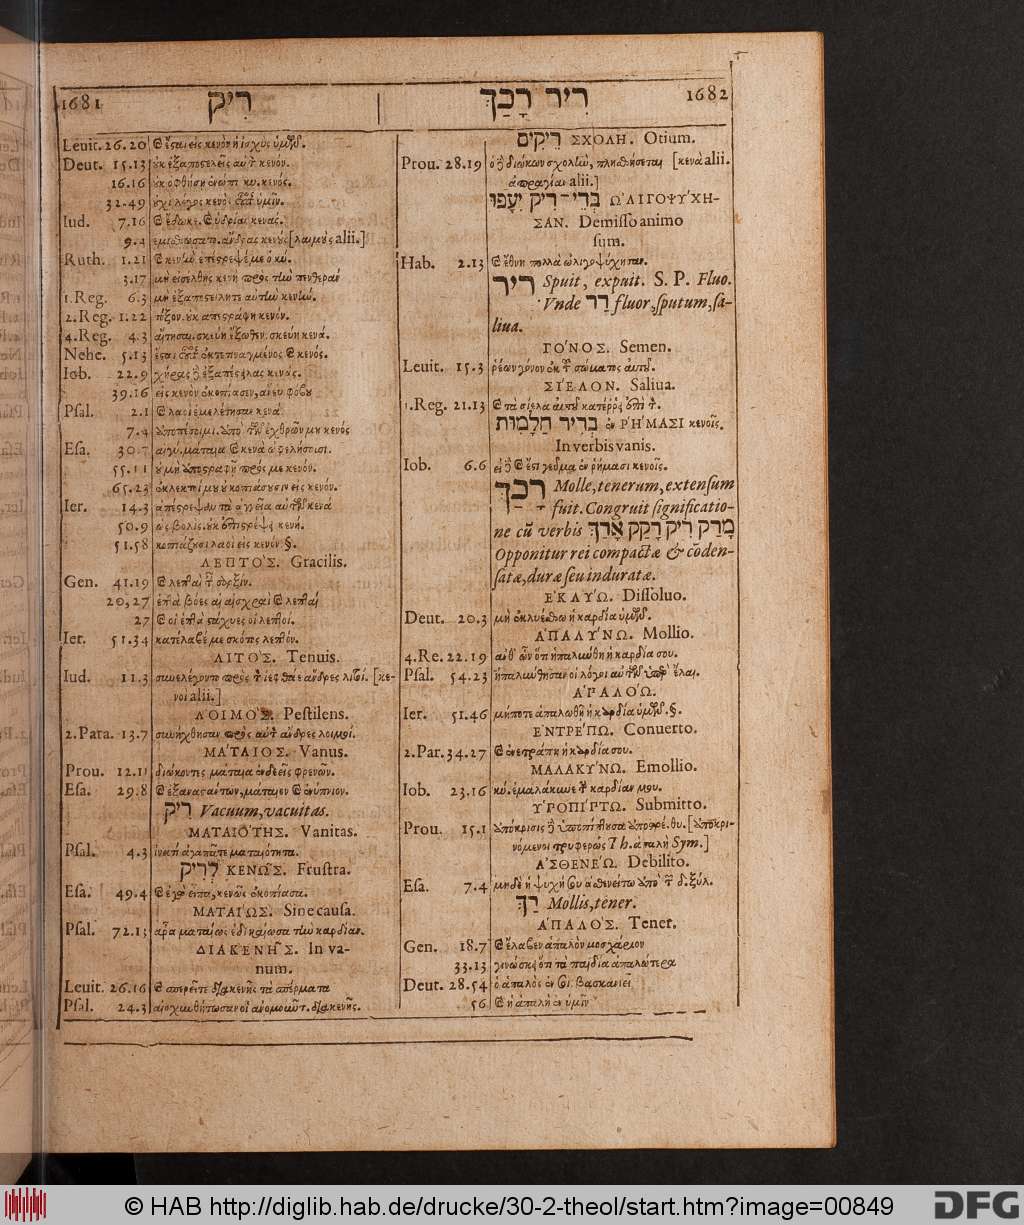 1681 רִיק
Leuit. 26.20 ἔσται εἰς κενὸν ἡ ἰσχὺς ὑμῶν.
Deut. 15.13 οὐκ ἐξαποστελεῖς αὐτὸν κενόν.
16.16 οὐκ ὀφθήσῃ ἐνώπιον κυ. κενός.
32.49 οὐχὶ λόγος κενὸς οὗτος ὑμῖν.
Iud. 7.16 ἔδωκε. ὑδρίας κενάς.
9.4 ἐμισθώσατο. ἄνδρας κενοὺς [λαιμοὺς alii.]
Ruth. 1.21 κενὴν ἐπέστρεψέ με ὁ κυ.
3.17 μὴ εἰσέλθῃς κενὴ πρὸς τὴν πενθεράν
1.Reg. 6.3 μὴ ἐξαποστείλητε αὐτὴν κενήν.
2.Reg. 1.22 τόξον. οὐκ ἀπεστράφη κενόν.
4.Reg. 4.3 αἴτησαι. σκεύη ἔξωθεν. σκεύη κενά.
Nehe. 5.13 ἔσται οὕτως ἐκτετιναγμένος κενός.
Iob. 22.9 χήρας ἐξαπέστειλας κενάς.
39.16 εἰς κενὸν ἐκοπίασεν, ἄνευ φόβου
Psal. 2.1 λαοὶ ἐμελέτησαν κενά
7.4 ἀποπέσοιμι. ἀπὸ τῶν ἐχθρῶν μου κενός
Esa. 30.7 αἰγυ. μάταια κενὰ ὠφελήσουσι.
55.11 οὐ μὴ ἀποστραφῇ πρός με κενόν.
65.23 ἐκλεκτοί μου οὐ κοπιάσουσιν εἰς κενόν.
Ier. 14.3 ἀπέστρεψαν τὰ ἀγγεῖα αὐτῶν κενά
50.9 ὡς βολὶς. οὐκ ἐπιστρέψει κενή.
51.58 κοπιάζουσι λαοὶ εἰς κενόν. §.
ΛΕΠΤΟ'Σ. Gracilis.
Gen. 41.19 λεπταὶ ταῖς σαρξίν.
20,27 ἑπτὰ βόες αἱ αἰσχραὶ λεπταὶ
27 οἱ ἑπτὰ στάχυες οἱ λεπτοί.
Ier. 51.34 κατέλαβέ με σκότος λεπτόν.
ΛΙΤΟ'Σ. Tenuis.
Iud. 11.3 συνελέγοντο πρὸς ἰεφθάε ἄνδρες λιτοί. [κε-
νοὶ alii.]
ΛΟΙΜΟ'Σ. Pestilens.
2.Para. 13.7 συνήχθησαν πρὸς αὐτὸν ἄνδρες λοιμοί.
ΜΑ'ΤΑΙΟΣ. Vanus.
Prou. 12.11 διώκοντες μάταια ἐνδεεῖς φρενῶν.
Esa. 29.8 ἐξαναστάντων, μάταιον ἐνύπνιον.
רִיק Vacuum, vacuitas.
ΜΑΤΑΙΟ'ΤΗΣ. Vanitas.
Psal. 4.3 ἱνατί ἀγαπᾶτε ματαιότητα.
לְרִיק ΚΕΝΩ͂Σ. Frustra.
Esa. 49.4 ἐγὼ εἶπα, κενῶς ἐκοπίασα.
ΜΑΤΑΙ'ΩΣ. Sine causa.
Psal. 72.13 ἄρα ματαίως ἐδικαίωσα τὴν καρδίαν.
ΔΙΑΚΕΝΗ͂Σ. In va-
num.
Leuit. 26.16 σπερεῖτε διακενῆς τὰ σπέρματα
Psal. 24.3 αἰσχυνθήτωσαν οἱ ἀνομοῦντ. διακενῆς.
רִיר רָכַךְ 1682
רִיקִים ΣΧΟΛΗ'. Otium.
Prou. 28.19 ὁ διώκων σχολὴν, πλησθήσεται [κενὰ alii.
ἀπραγίαν alii.]
בְּדֵי־רִיק יִעָפוּ Ω'ΛΙΓΟΨΥ'ΧΗ-
ΣΑΝ. Demisso animo
sum.
Hab. 2.13 ἔθνη πολλὰ ὠλιγοψύχησαν.
רִיר Spuit, expuit. S. P. Fluo.
Vnde רַר fluor, sputum, sa-
liua.
ΓΟ'ΝΟΣ. Semen.
Leuit. 15.3 ῥέων γόνον ἐκ τοῦ σώματος αὐτοῦ.
ΣΙ'ΕΛΟΝ. Saliua.
1.Reg. 21.13 τὰ σίελα αὐτοῦ κατέρρει ἐπὶ τὸν.
בְּרִיר חַלָּמוּת ἐν ΡΗ'ΜΑΣΙ κενοῖς.
In verbis vanis.
Iob. 6.6 εἰ ἔστι γεῦμα ἐν ῥήμασι κενοῖς.
רָכַךְ Molle, tenerum, extensum
fuit. Congruit significatio-
ne cū verbis מָרַק רִיק רָקַק אָרַךְ
Opponitur rei compactæ & cōden-
satæ, duræ seu induratæ.
ΕΚΛΥ'Ω. Dissoluo.
Deut. 20.3 μὴ ἐκλυέσθω ἡ καρδία ὑμῶν.
Α'ΠΑΛΥ'ΝΩ. Mollio.
4.Re. 22.19 ἀνθ' ὧν ὅτι ἡπαλύνθη ἡ καρδία σου.
Psal. 54.23 ἡπαλύνθησαν οἱ λόγοι αὐτῶν ὑπὲρ ἔλαι.
Α'ΡΑΛΟ'Ω.
Ier. 51.46 μήποτε ἁπαλωθῇ ἡ καρδία ὑμῶν. §.
Ε'ΝΤΡΕ'ΠΩ. Conuerto.
2.Par. 34.27 ἐνετράπη ἡ καρδία σου.
ΜΑΛΑΚΥ'ΝΩ. Emollio.
Iob. 23.16 κύ. ἐμαλάκυνε τὴν καρδίαν μου.
Υ'ΡΟΠΙ'ΡΤΩ. Submitto.
Prou. 15.1 ἀπόκρισις ὑποπίπτουσα ἀποστρέ. θυ. [ἀποκρι-
νόμενοι τρυφερῶς Th. ἁπαλὴ Sym.]
Α'ΣΘΕΝΕ'Ω. Debilito.
Esa. 7.4 μηδὲ ἡ ψυχή σου ἀσθενείτω ἀπὸ τῶν δ. ξύλ.
רַךְ Mollis, tener.
Α'ΠΑΛΟ'Σ. Tener.
Gen. 18.7 ἔλαβεν ἁπαλὸν μοσχάριον
33.13 γινώσκει ὅτι τὰ παιδία ἁπαλώτερα
Deut. 28.54 ὁ ἁπαλὸς ἐν σοι. βασκανιεῖ
56 ἡ ἁπαλὴ ἐν ὑμῖν
© HAB http://diglib.hab.de/drucke/30-2-theol/start.htm?image=00849
DFG